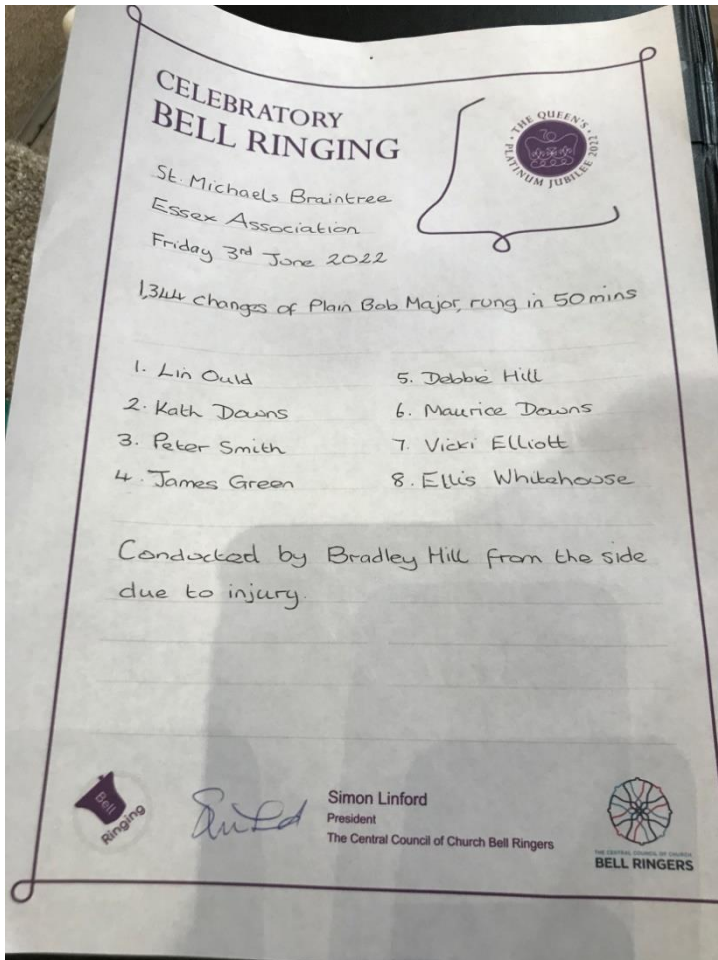 CELEBRATORY
BELL RINGING
THE QUEEN'S
PLATINUM JUBILEE 2022
70
St. Michaels Braintree
Essex Association
Friday 3rd June 2022
1,344 changes of Plain Bob Major, rung in 50 mins
1. Lin Ould
2. Kath Downs
3. Peter Smith
4. James Green
5. Debbie Hill
6. Maurice Downs
7. Vicki Elliott
8. Ellis Whitehouse
Conducted by Bradley Hill from the side
due to injury.
Bell
Ringing
Simon Linford
President
The Central Council of Church Bell Ringers
THE CENTRAL COUNCIL OF CHURCH
BELL RINGERS